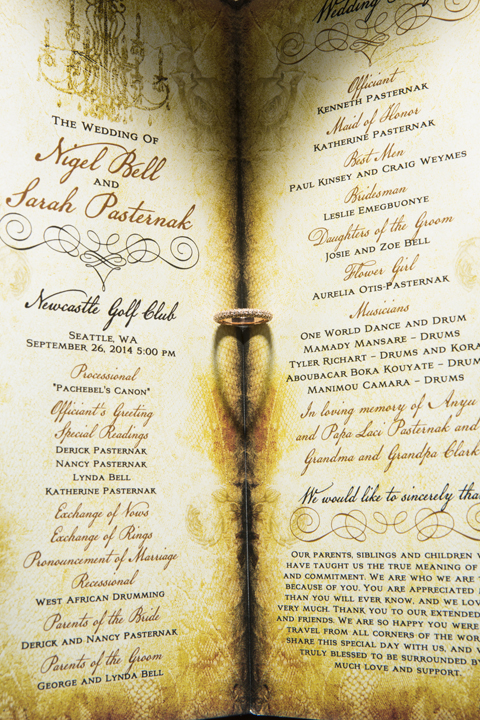 The Wedding Of
Nigel Bell
and
Sarah Pasternak
Newcastle Golf Club
Seattle, WA
September 26, 2014 5:00 pm
Processional
"Pachebel's Canon"
Officiant's Greeting
Special Readings
Derick Pasternak
Nancy Pasternak
Lynda Bell
Katherine Pasternak
Exchange of Vows
Exchange of Rings
Pronouncement of Marriage
Recessional
West African Drumming
Parents of the Bride
Derick and Nancy Pasternak
Parents of the Groom
George and Lynda Bell
Wedding
Officiant
Kenneth Pasternak
Maid of Honor
Katherine Pasternak
Best Men
Paul Kinsey and Craig Weymes
Bridesman
Leslie Emegbuonye
Daughters of the Groom
Josie and Zoe Bell
Flower Girl
Aurelia Otis-Pasternak
Musicians
One World Dance and Drum
Mamady Mansare – Drums
Tyler Richart – Drums and Kora
Aboubacar Boka Kouyate – Drums
Manimou Camara – Drums
In loving memory of Anyu
and Papa Laci Pasternak and
Grandma and Grandpa Clark
We would like to sincerely
Our parents, siblings and children
have taught us the true meaning of
and commitment. We are who we are
because of you. You are appreciated
than you will ever know, and we
very much. Thank you to our extended
and friends. We are so happy you were
travel from all corners of the
share this special day with us, and
truly blessed to be surrounded
much love and support.